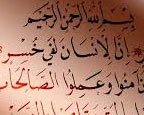 بِسْمِ اللهِ الرَّحْمنِ الرَّحِيمِ
إِنَّ الإِنسَانَ لَفِي خُسْرٍ
آمَنُوا وَعَمِلُوا الصَّالِحَاتِ